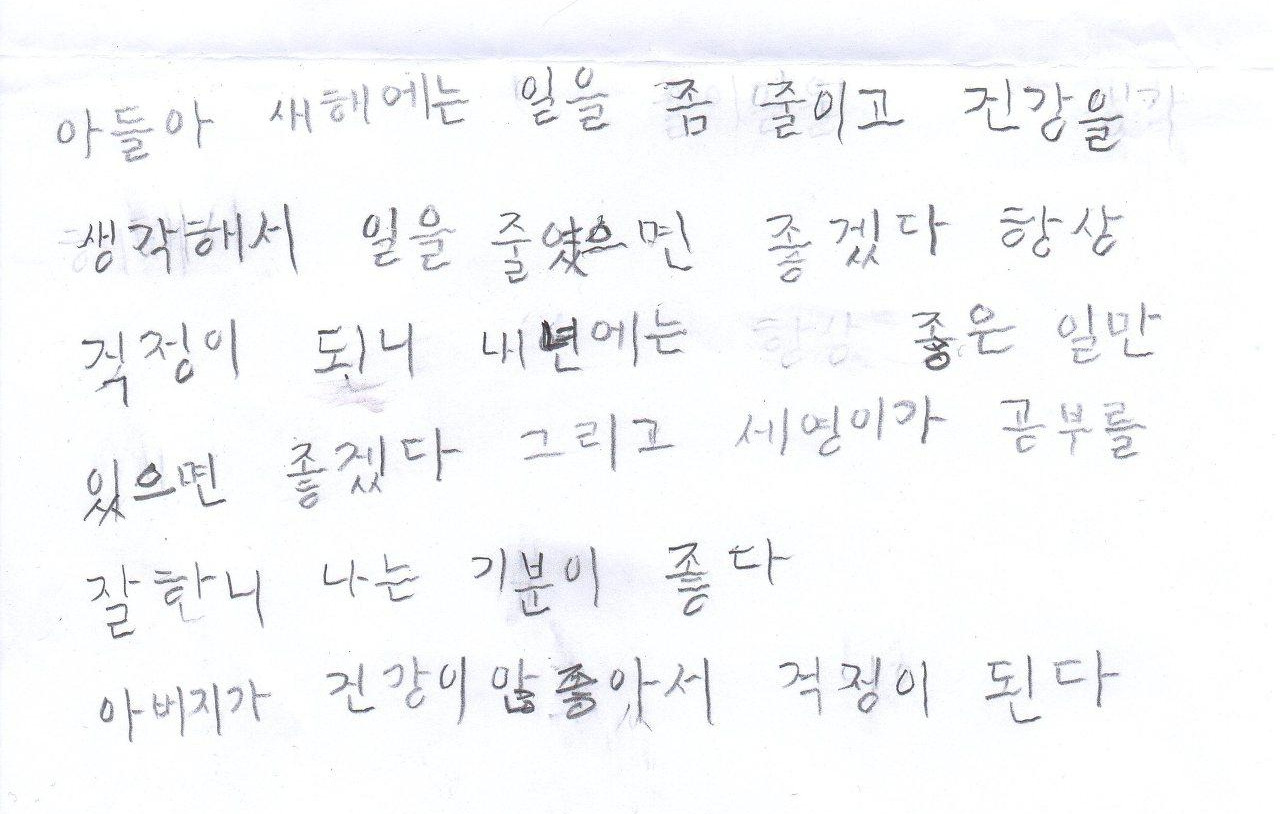 아들아 새해에는 일을 좀 줄이고 건강을
생각해서 일을 줄였으면 좋겠다 항상
걱정이 된니 내년에는 좋은 일만
있으면 좋겠다 그리고 세영이가 공부를
잘한니 나는 기분이 좋다
아버지가 건강이 않좋아서 걱정이 된다